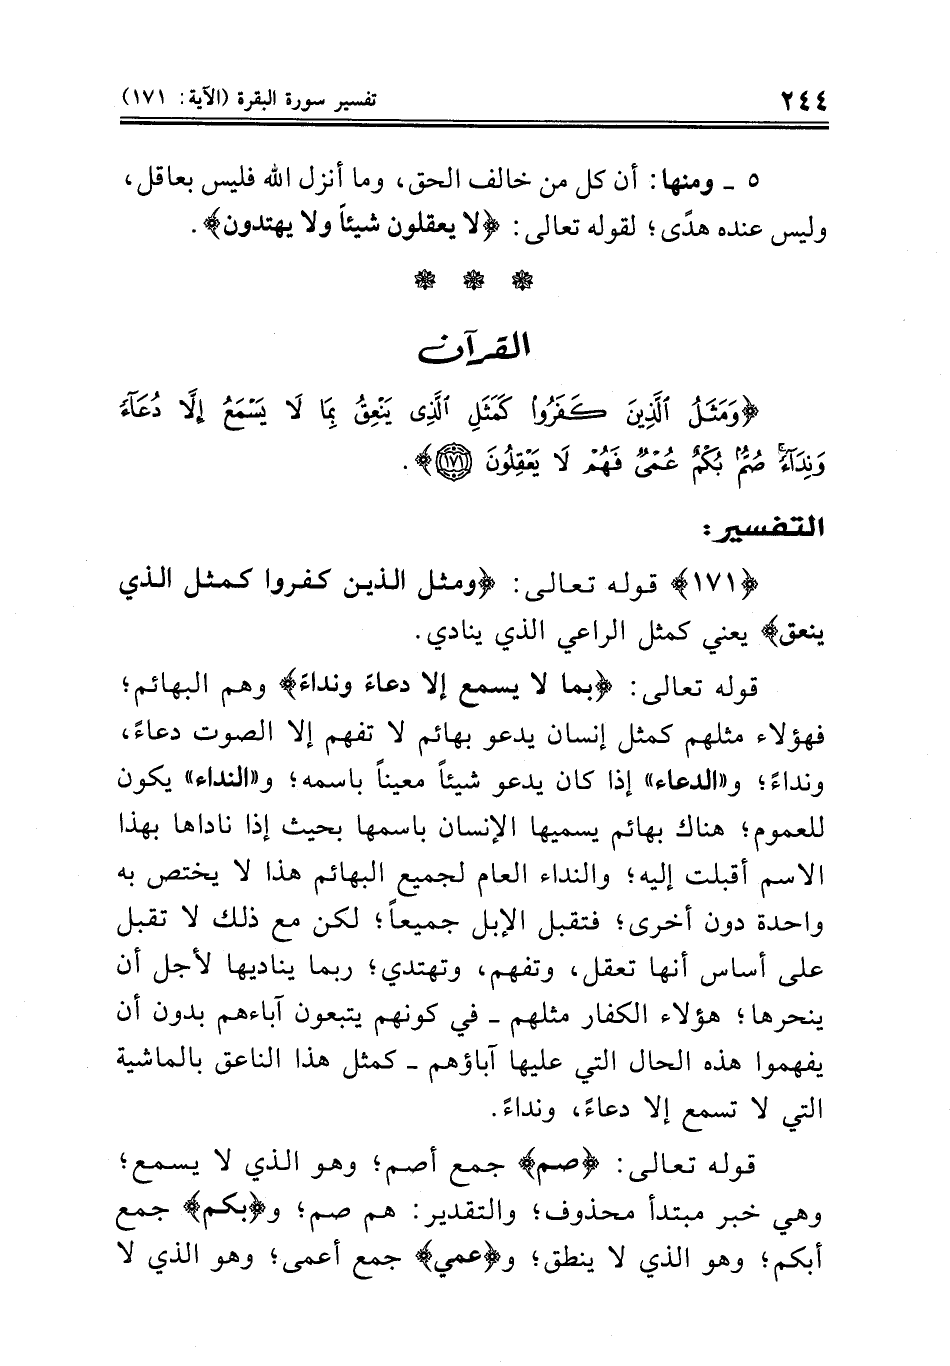 ٢٤٤ تفسير سورة البقرة (الآية: ١٧١)
٥ ـ ومنها: أن كل من خالف الحق، وما أنزل الله فليس بعاقل،
وليس عنده هدًى؛ لقوله تعالى: ﴿لا يعقلون شيئاً ولا يهتدون﴾.
القرآن
﴿وَمَثَلُ ٱلَّذِينَ كَفَرُواْ كَمَثَلِ ٱلَّذِى يَنْعِقُ بِمَا لَا يَسْمَعُ إِلَّا دُعَآءً
وَنِدَآءًۚ صُمُّۢ بُكْمٌ عُمْىٌ فَهُمْ لَا يَعْقِلُونَ ١٧١﴾.
التفسير:
﴿١٧١﴾ قوله تعالى: ﴿ومثل الذين كفروا كمثل الذي
ينعق﴾ يعني كمثل الراعي الذي ينادي.
قوله تعالى: ﴿بما لا يسمع إلا دعاءً ونداءً﴾ وهم البهائم؛
فهؤلاء مثلهم كمثل إنسان يدعو بهائم لا تفهم إلا الصوت دعاءً،
ونداءً؛ و«الدعاء» إذا كان يدعو شيئاً معيناً باسمه؛ و«النداء» يكون
للعموم؛ هناك بهائم يسميها الإنسان باسمها بحيث إذا ناداها بهذا
الاسم أقبلت إليه؛ والنداء العام لجميع البهائم هذا لا يختص به
واحدة دون أخرى؛ فتقبل الإبل جميعاً؛ لكن مع ذلك لا تقبل
على أساس أنها تعقل، وتفهم، وتهتدي؛ ربما يناديها لأجل أن
ينحرها؛ هؤلاء الكفار مثلهم ـ في كونهم يتبعون آباءهم بدون أن
يفهموا هذه الحال التي عليها آباؤهم ـ كمثل هذا الناعق بالماشية
التي لا تسمع إلا دعاءً، ونداءً.
قوله تعالى: ﴿صم﴾ جمع أصم؛ وهو الذي لا يسمع؛
وهي خبر مبتدأ محذوف؛ والتقدير: هم صم؛ و﴿بكم﴾ جمع
أبكم؛ وهو الذي لا ينطق؛ و﴿عمي﴾ جمع أعمى؛ وهو الذي لا